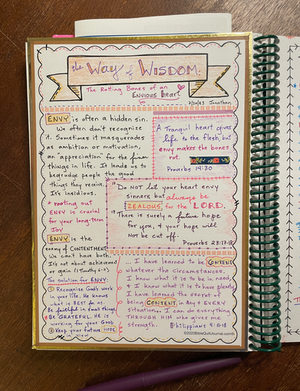 the WAY of WISDOM.
The Rotting Bones of an
ENVIOUS Heart
ENVY is often a hidden sin.
We often don't recognize
it. Sometimes it masquerades
as ambition or motivation,
an appreciation for the finer
things in life. It leads us to
begrudge people the good
things they receive.
It's insidious.
rooting out
ENVY is crucial
for your long-term
Joy
ENVY is the
enemy of CONTENTMENT.
We can't have both.
It's not about achieving
or gain (1 Timothy 6:7).
The Solution for ENVY:
① Recognize God's work
in your life. He knows
what is best for us.
Be faithful in small things.
Be GRATEFUL. HE is
working for your Good
Keep your future HOPE
A Tranquil heart gives
Life to the flesh, but
envy makes the bones
rot.
Proverbs 14:30
"Do NOT let your heart envy
sinners, but always be
ZEALOUS for the LORD.
There is surely a future hope
for you, & your hope will
not be cut off.
Proverbs 23:17-18
I have learned to be CONTENT
whatever the circumstances.
I know what it is to be in need,
& I know what it is to have plenty.
I have learned the secret of
being CONTENT in Any & EVERY
situation. I can do everything
THROUGH HIM who gives me
strength.
Philippians 4:11-13